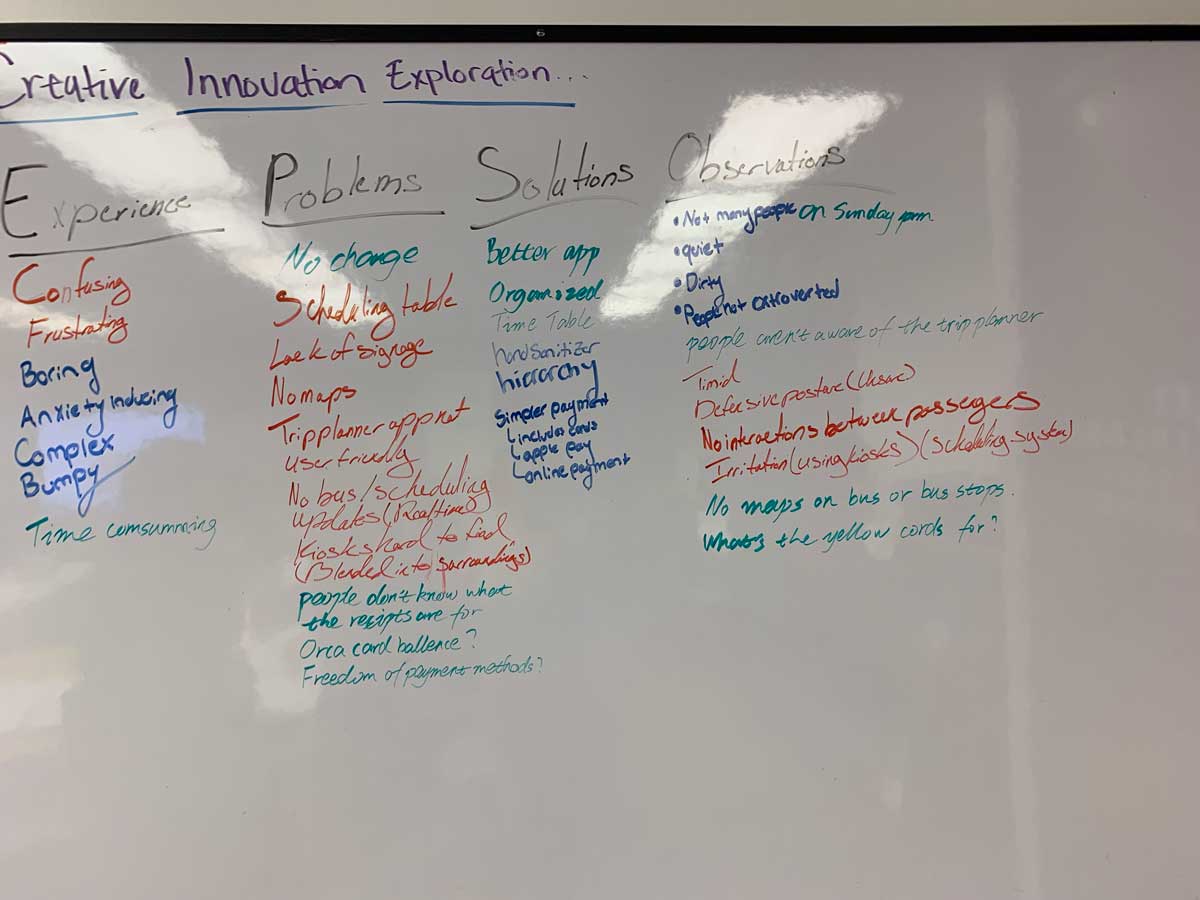 Creative Innovation Exploration...
Experience
Confusing
Frustrating
Boring
Anxiety Inducing
Complex
Bumpy
Time comsumming
Problems
No change
Scheduling table
Lack of signage
No maps
Trip planner app not
user friendly
No bus/scheduling
updates (Realtime)
Kiosks hard to find
(Blended into surroundings)
people don't know what
the recipts are for
Orca card ballence?
Freedom of payment methods?
Solutions
Better app
Organized
Time Table
hand Sanitizer
hierarchy
Simpler payment
includes cards
apple pay
online payment
Observations
• Not many people on Sunday pm
• quiet
• Dirty
• People not extroverted
people aren't aware of the trip planner
Timid
Defensive posture
No interactions between passegers
Irritation (using kiosks) (scheduling system)
No maps on bus or bus stops.
What's the yellow cords for?